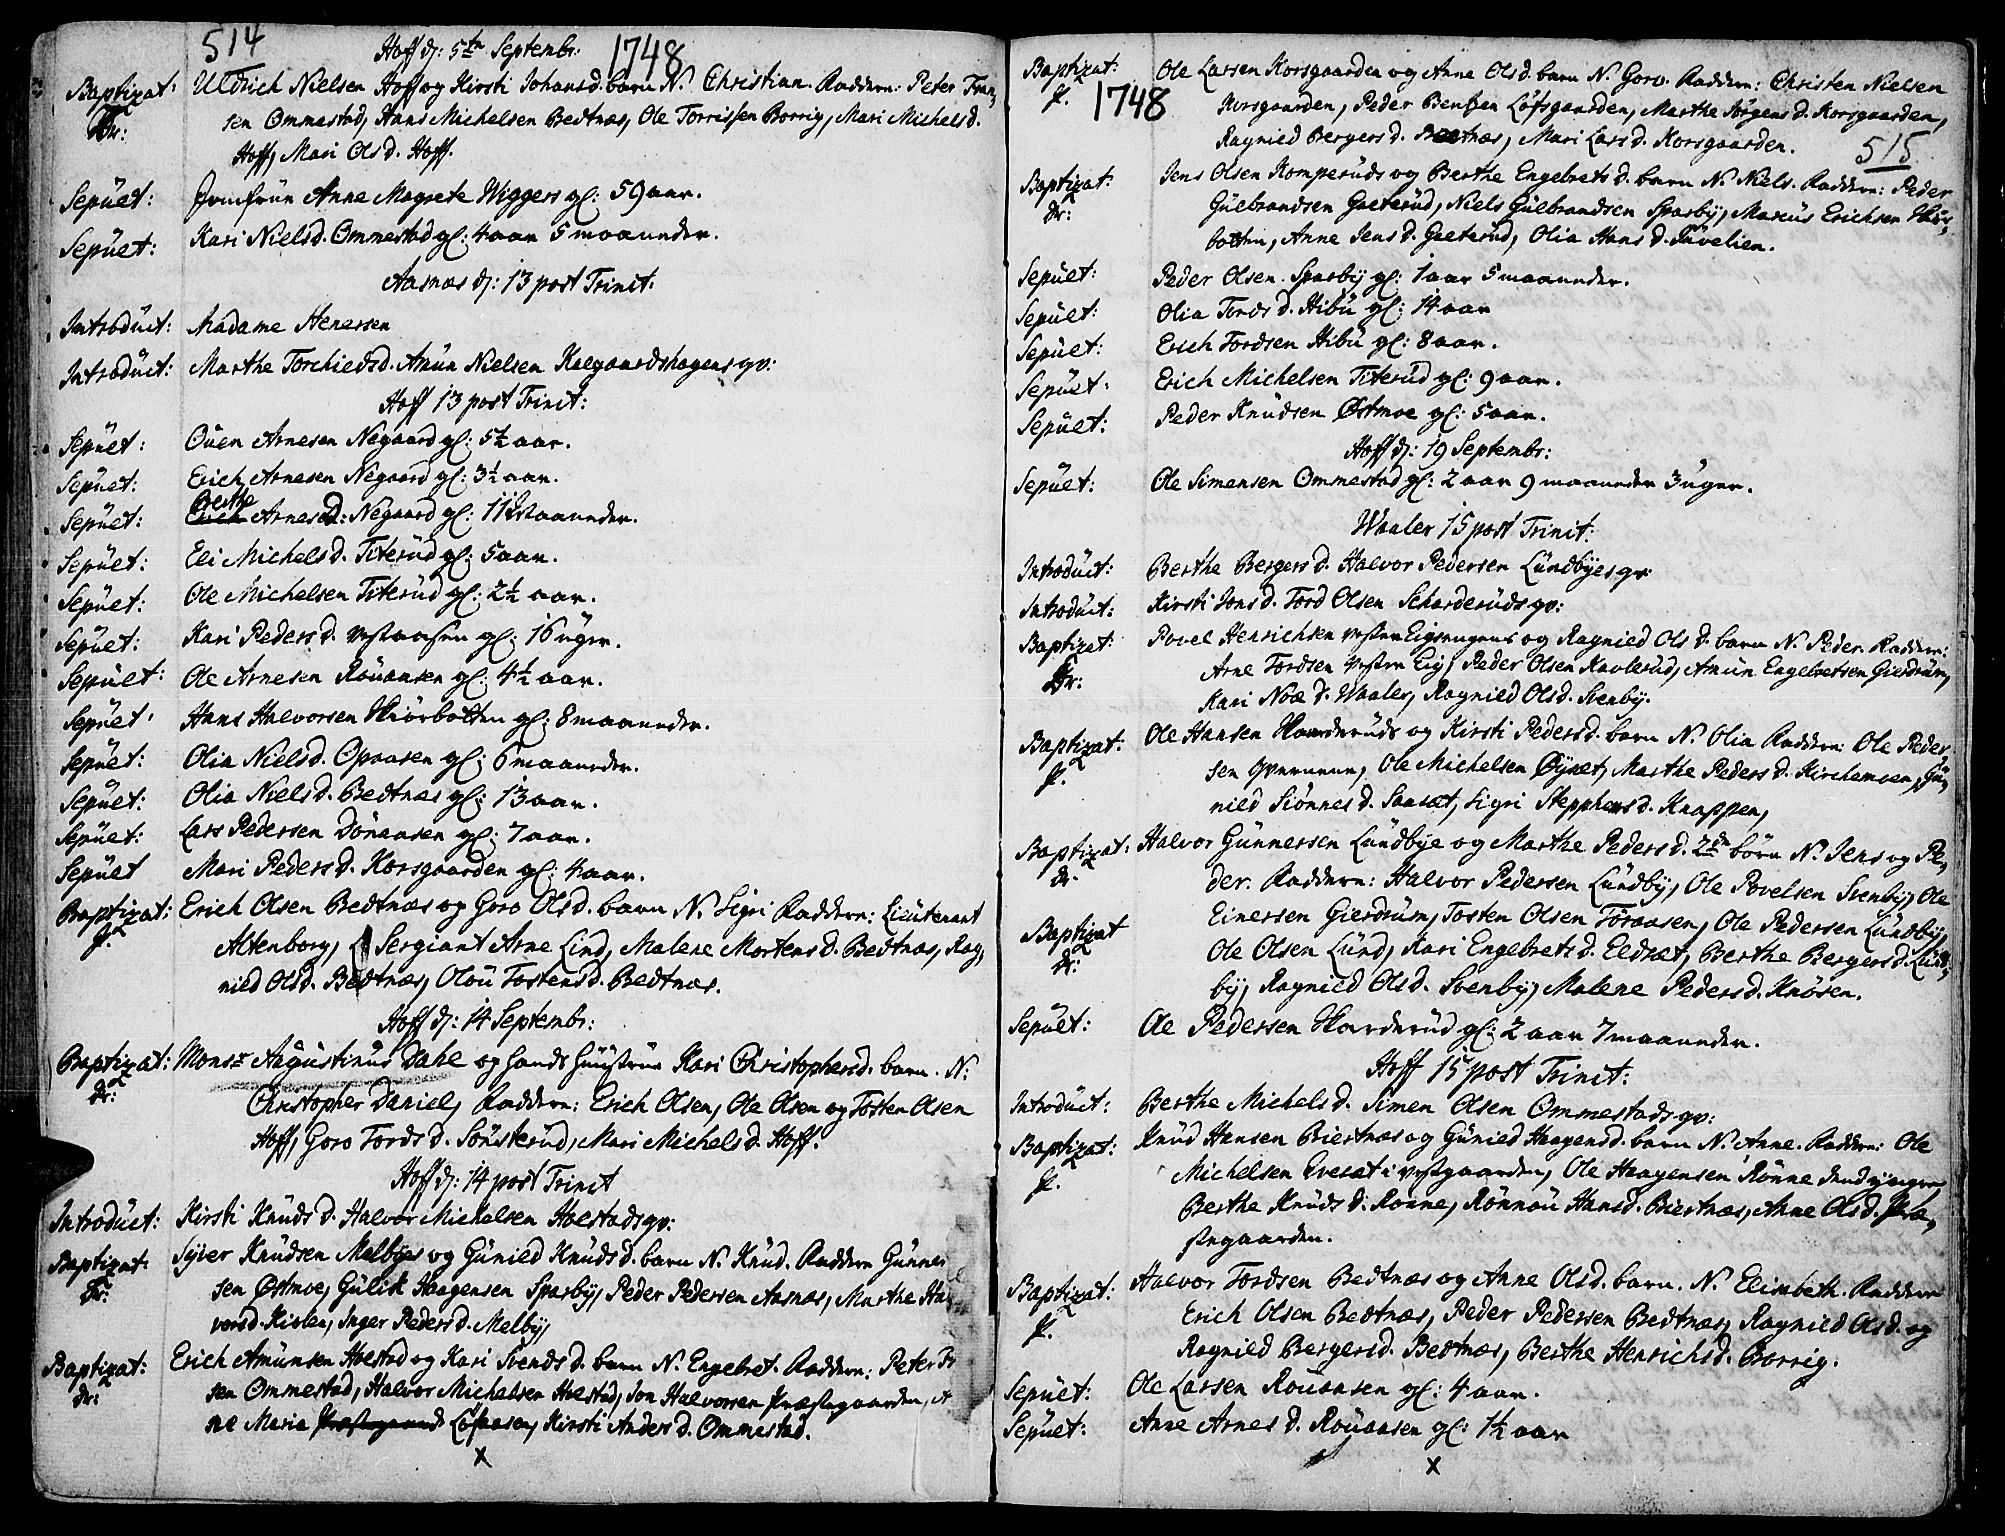 514
Hoff d: 5te Septembr. 1748
Baptizat: Uldrich Nielsen Hoff og Kirsti Johansd. barn N. Christian. Faddern: Peter Fran-
dr: sen Ommestad, Hans Michelsen Bedtnæs, Ole Torrissen Borrig, Mari Michelsd.
Hoff, Mari Olsd. Hoff.
Sepult: Jomfrue Anne Magrete Wiggers gl: 59 aar.
Sepult: Kari Nielsd. Ommestad gl: 4 aar 5 maaneder.
Aasnæs d: 13 post Trinit:
Introduct: Madame Stenersen
Introduct: Marthe Torchieldsd. Amun Nielsen Kalgaardshagens qv:
Hoff 13 post Trinit:
Sepult: Ouen Arnesen Negaard gl: 5½ aar.
Sepult: Erich Arnesen Negaard gl: 3½ aar.
Berthe
Sepult: Erich Arnesd: Negaard gl: 11 Maaneder.
Sepult: Eli Michelsd. Titerud gl: 5 aar.
Sepult: Ole Michelsen Titerud gl: 2½ aar.
Sepult: Kari Pedersd. gl: 16 uger.
Sepult: Ole Arnesen Rouaasen gl: 4½ aar.
Sepult: Hans Halvorsen Skiörbotten gl: 8 maaneder.
Sepult: Olia Nielsd. Opaasen gl: 6 maaneder.
Sepult: Olia Nielsd. Bedtnæs gl: 13 aar.
Sepult: Lars Pedersen Dönaasen gl: 7 aar.
Sepult Mari Pedersd. Korsgaarden gl: 4 aar.
Baptizat: Erich Olsen Bedtnæs og Goro Olsd. barn N. Sigri Faddern: Lieutenant
f. Altenborg, Sergiant Arne Lind, Malene Mortensd. Bedtnæs, Rag-
nild Olsd. Bedtnæs, Olou Tostensd. Bedtnæs.
Hoff d: 14 Septembr:
Baptizat: Monsr Augustinus Dahl og hands hustrue Kari Christophersd. barn N:
dr: Christopher Daniel, Faddern: Erich Olsen, Ole Olsen og Tosten Olsen
Hoff, Goro Tordsd. Sönsterud, Mari Michelsd. Hoff.
Hoff d: 14 post Trinit
Introduct: Kirsti Knudsd. Halvor Michelsen Holstads qv:
Baptizat: Syver Knudsen Melbyes og Gunild Knudsd. barn N. Knud. Faddern Gunner
dr: sen Østmoe, Gulik Haagensen Sparby, Peder Pedersen Aasnæs, Marthe Hal
vorsd. Kislen, Inger Pedersd. Melby,
Baptizat: Erich Amunsen Holstad og Kari Svendsd. barn N. Engebret. Faddern: Peter Fr
dr: sen Ommestad, Halvor Michelsen Holstad, Jon Halvorsen Præstegaarden, A
ne Maria Præstegaard Löfaasen, Kirsti Andersd. Ommestad.
x
Baptizat: Ole Larsen Korsgaarden og Anne Olsd. barn N. Goro. Faddern: Christen Nielsen
f. 1748 Korsgaarden, Peder Bentsen Löfsgaarden, Marthe Jörgensd. Korsgaarden,
Ragnild Bergersd. Bedtnæs, Mari Larsd. Korsgaarden.
515
Baptizat: Jens Olsen Komperuds og Berthe Engebretsd. barn N. Niels. Faddern: Peder
dr: Gulbrandsen Gaeterud, Niels Gulbrandsen Sparby, Marcus Erichsen Skiör-
botten, Anne Jensd. Gaeterud, Olia Hansd. Juvelien.
Sepult: Peder Olsen Sparby gl: 1 aar 5 maaneder.
Sepult: Olia Tordsd. Hibu gl: 14 aar
Sepult: Erich Tordsen Hibu gl: 8 aar.
Sepult: Erich Michelsen Titerud gl: 9 aar.
Sepult: Peder Knudsen Østmoe gl: 5 aar.
Hoff d: 19 Septembr:
Sepult: Ole Simensen Ommestad gl: 2 aar 9 maaneder 3 uger.
Waaler 15 post Trinit:
Introduct: Berthe Bergersd. Halvor Pedersen Lundbyes qv:
Introduct: Kirsti Jonsd. Tord Olsen Scharderuds qv:
Baptizat: Povel Henrichsen og Ragnild Olsd. barn N. Peder. Faddern:
dr: Arne Tordsen Peder Olsen Kavlerud, Amun Engebretsen Gierdrum,
Kari Noæd. Waaler, Ragnild Olsd. Svenby.
Baptizat: Ole Hansen Skarderuds og Kirsti Pedersd. barn N. Olia Faddern: Ole Peder
f. sen Ole Michelsen Öyset, Marthe Pedersd. Kirchemoen, Gu-
nild Siönnesd. Saaset, Sigri Stepphensd. Knappen,
Baptizat: Halvor Gunnersen Lundbye og Marthe Pedersd. 2de börn N. Jens og Pe-
dr. der. Faddern: Halvor Pedersen Lundby, Ole Povelsen Svenby, Ole
Baptizat Einersen Gierdrum, Tosten Olsen Toraasen, Ole Pedersen Lundby,
dr: Ole Olsen Lund, Kari Engebretsd. Eldset, Berthe Bergersd. Lund-
by, Ragnild Olsd. Svenby, Malene Pedersd. Knösen.
Sepult: Ole Pedersen Skarderud gl: 2 aar 7 maaneder.
Hoff 15 post Trinit:
Introduct: Berthe Michelsd. Simen Olsen Ommestads qv:
Baptizat: Knud Hansen Biertnæs og Gunild Haagensd. barn N. Anne. Faddern: Ole
f. Michelsen Evesæt i vestgaarden, Ole Haagensen Rönne
Berthe Knudsd: Rönne, Rönnou Hansd. Biertnæs, Anne Olsd. Præ-
stegaarden.
Baptizat: Halvor Tordsen Bedtnæs og Anne Olsd. barn N. Elisabeth. Faddern
f. Erich Olsen Bedtnæs, Peder Pedersen Bedtnæs, Ragnild Olsd. og
Ragnild Bergersd. Bedtnæs, Berthe Henrichsd. Borrig.
Sepult: Ole Larsen Rouaasen gl: 4 aar.
Sepult: Anne Arnesd. Rouaasen gl: 1½ aar
x